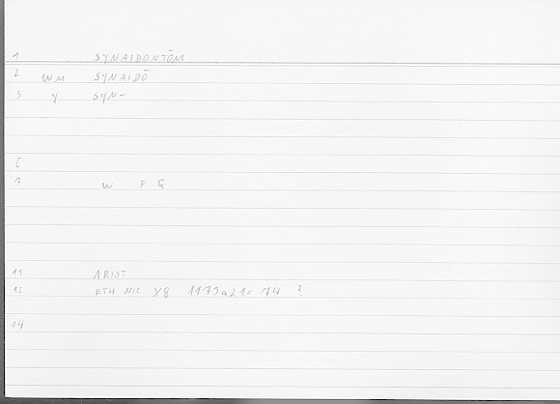 1 SYNAIDONTŌM
2 WM SYNAIDŌ
3 Y SYN-
6
7 W F G
11 ARIST
12 ETH NIC X8 1179a21= 74 ?
14